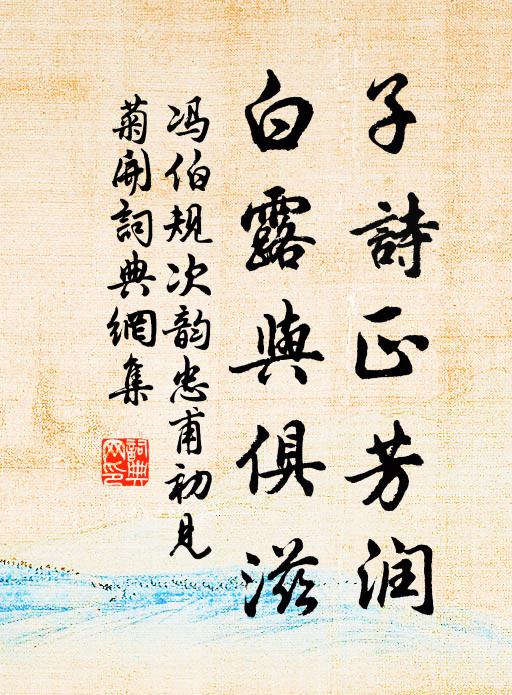 子詩正芳润
白露與俱滋
冯伯规次韵忠甫初见
菊開詞典網集
詞典